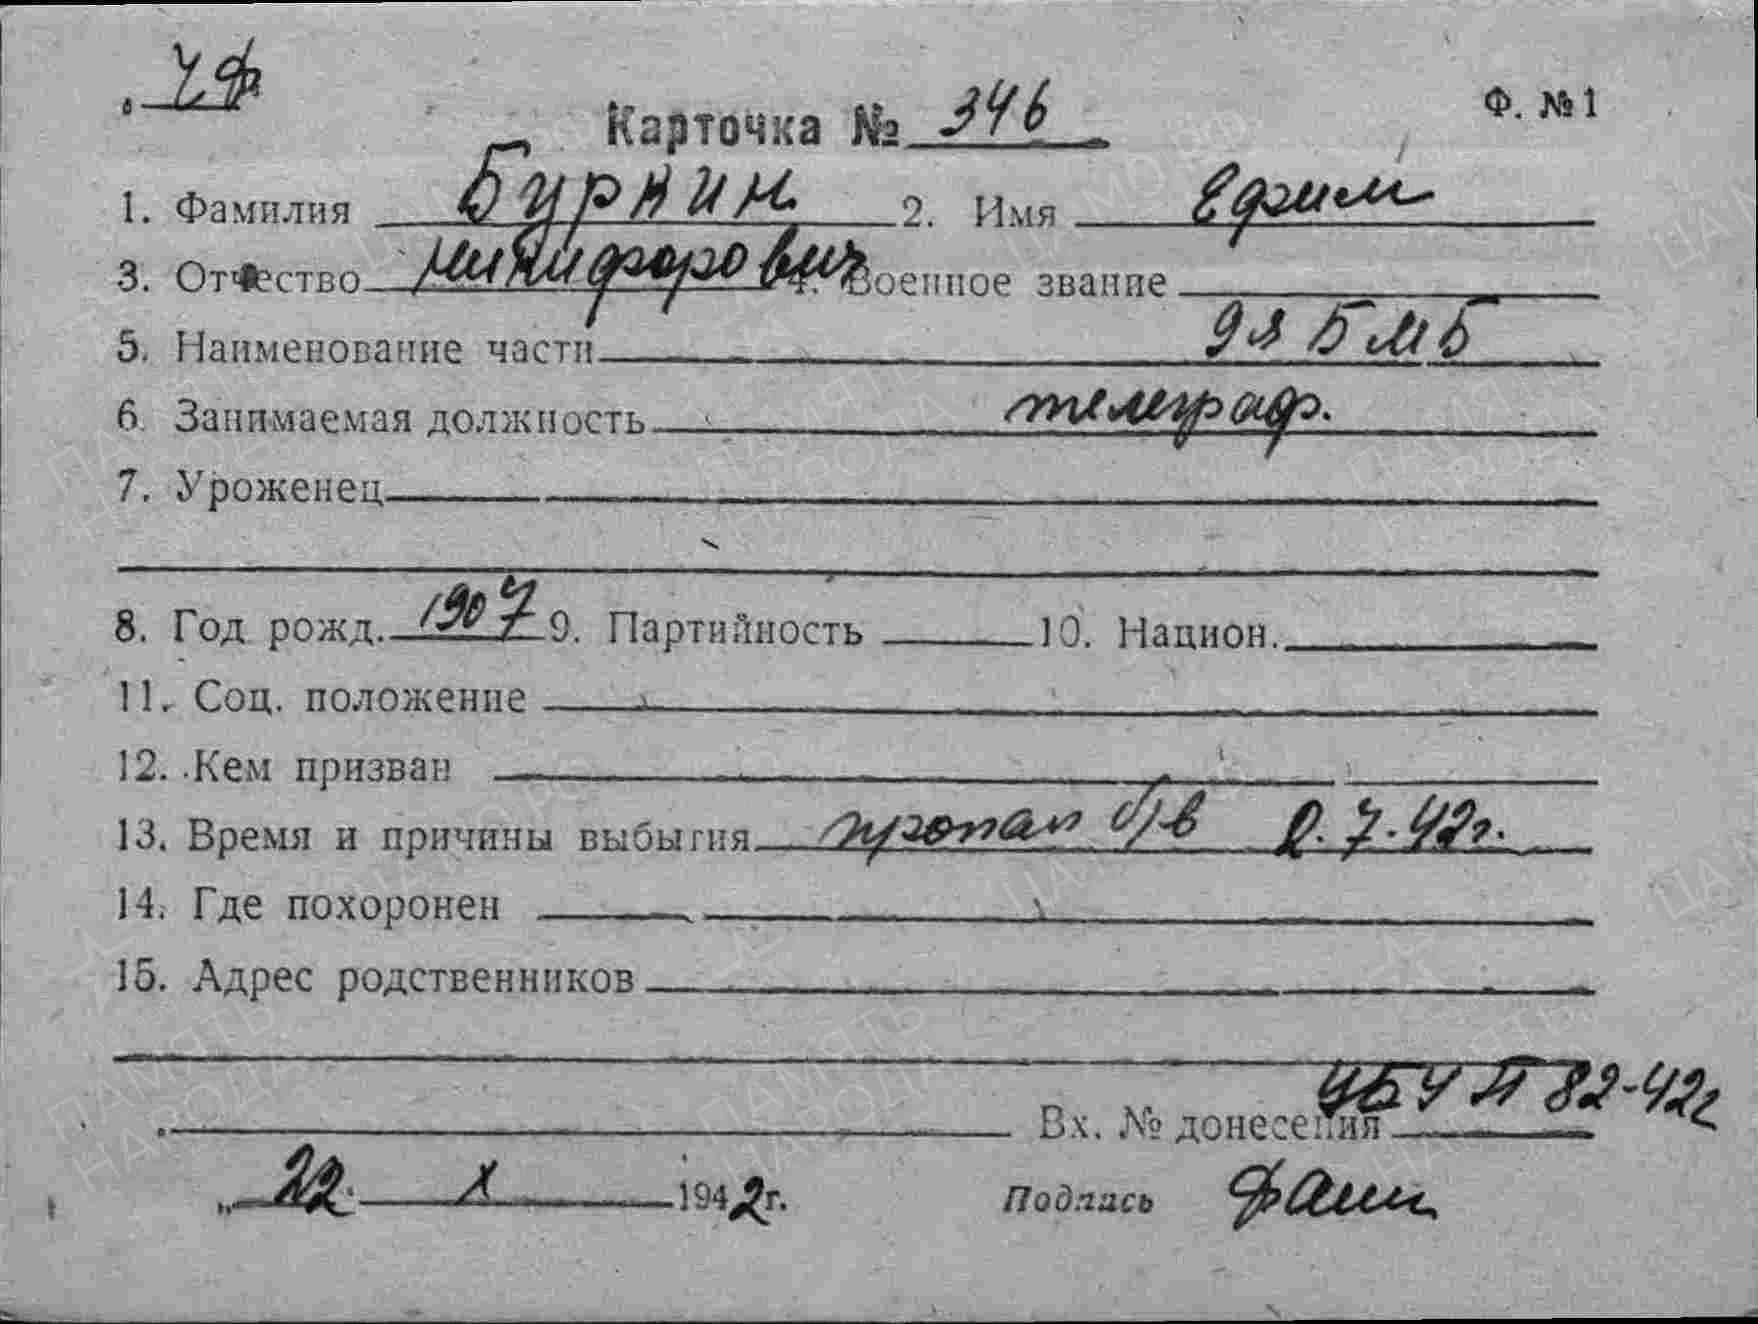 ЧФ
Карточка № 346 Ф. №1
1. Фамилия Буркин 2. Имя Ефим
3. Отчество Никифорович 4. Военное звание
5. Наименование части 9я БМБ
6. Занимаемая должность телеграф.
7. Уроженец
8. Год рожд. 1907 9. Партийность 10. Национ.
11. Соц. положение
12. Кем призван
13. Время и причины выбытия пропал б/в 2.7.42г.
14. Где похоронен
15. Адрес родственников
Вх. № донесения 82-42г
„22. X 1942г. Подпись